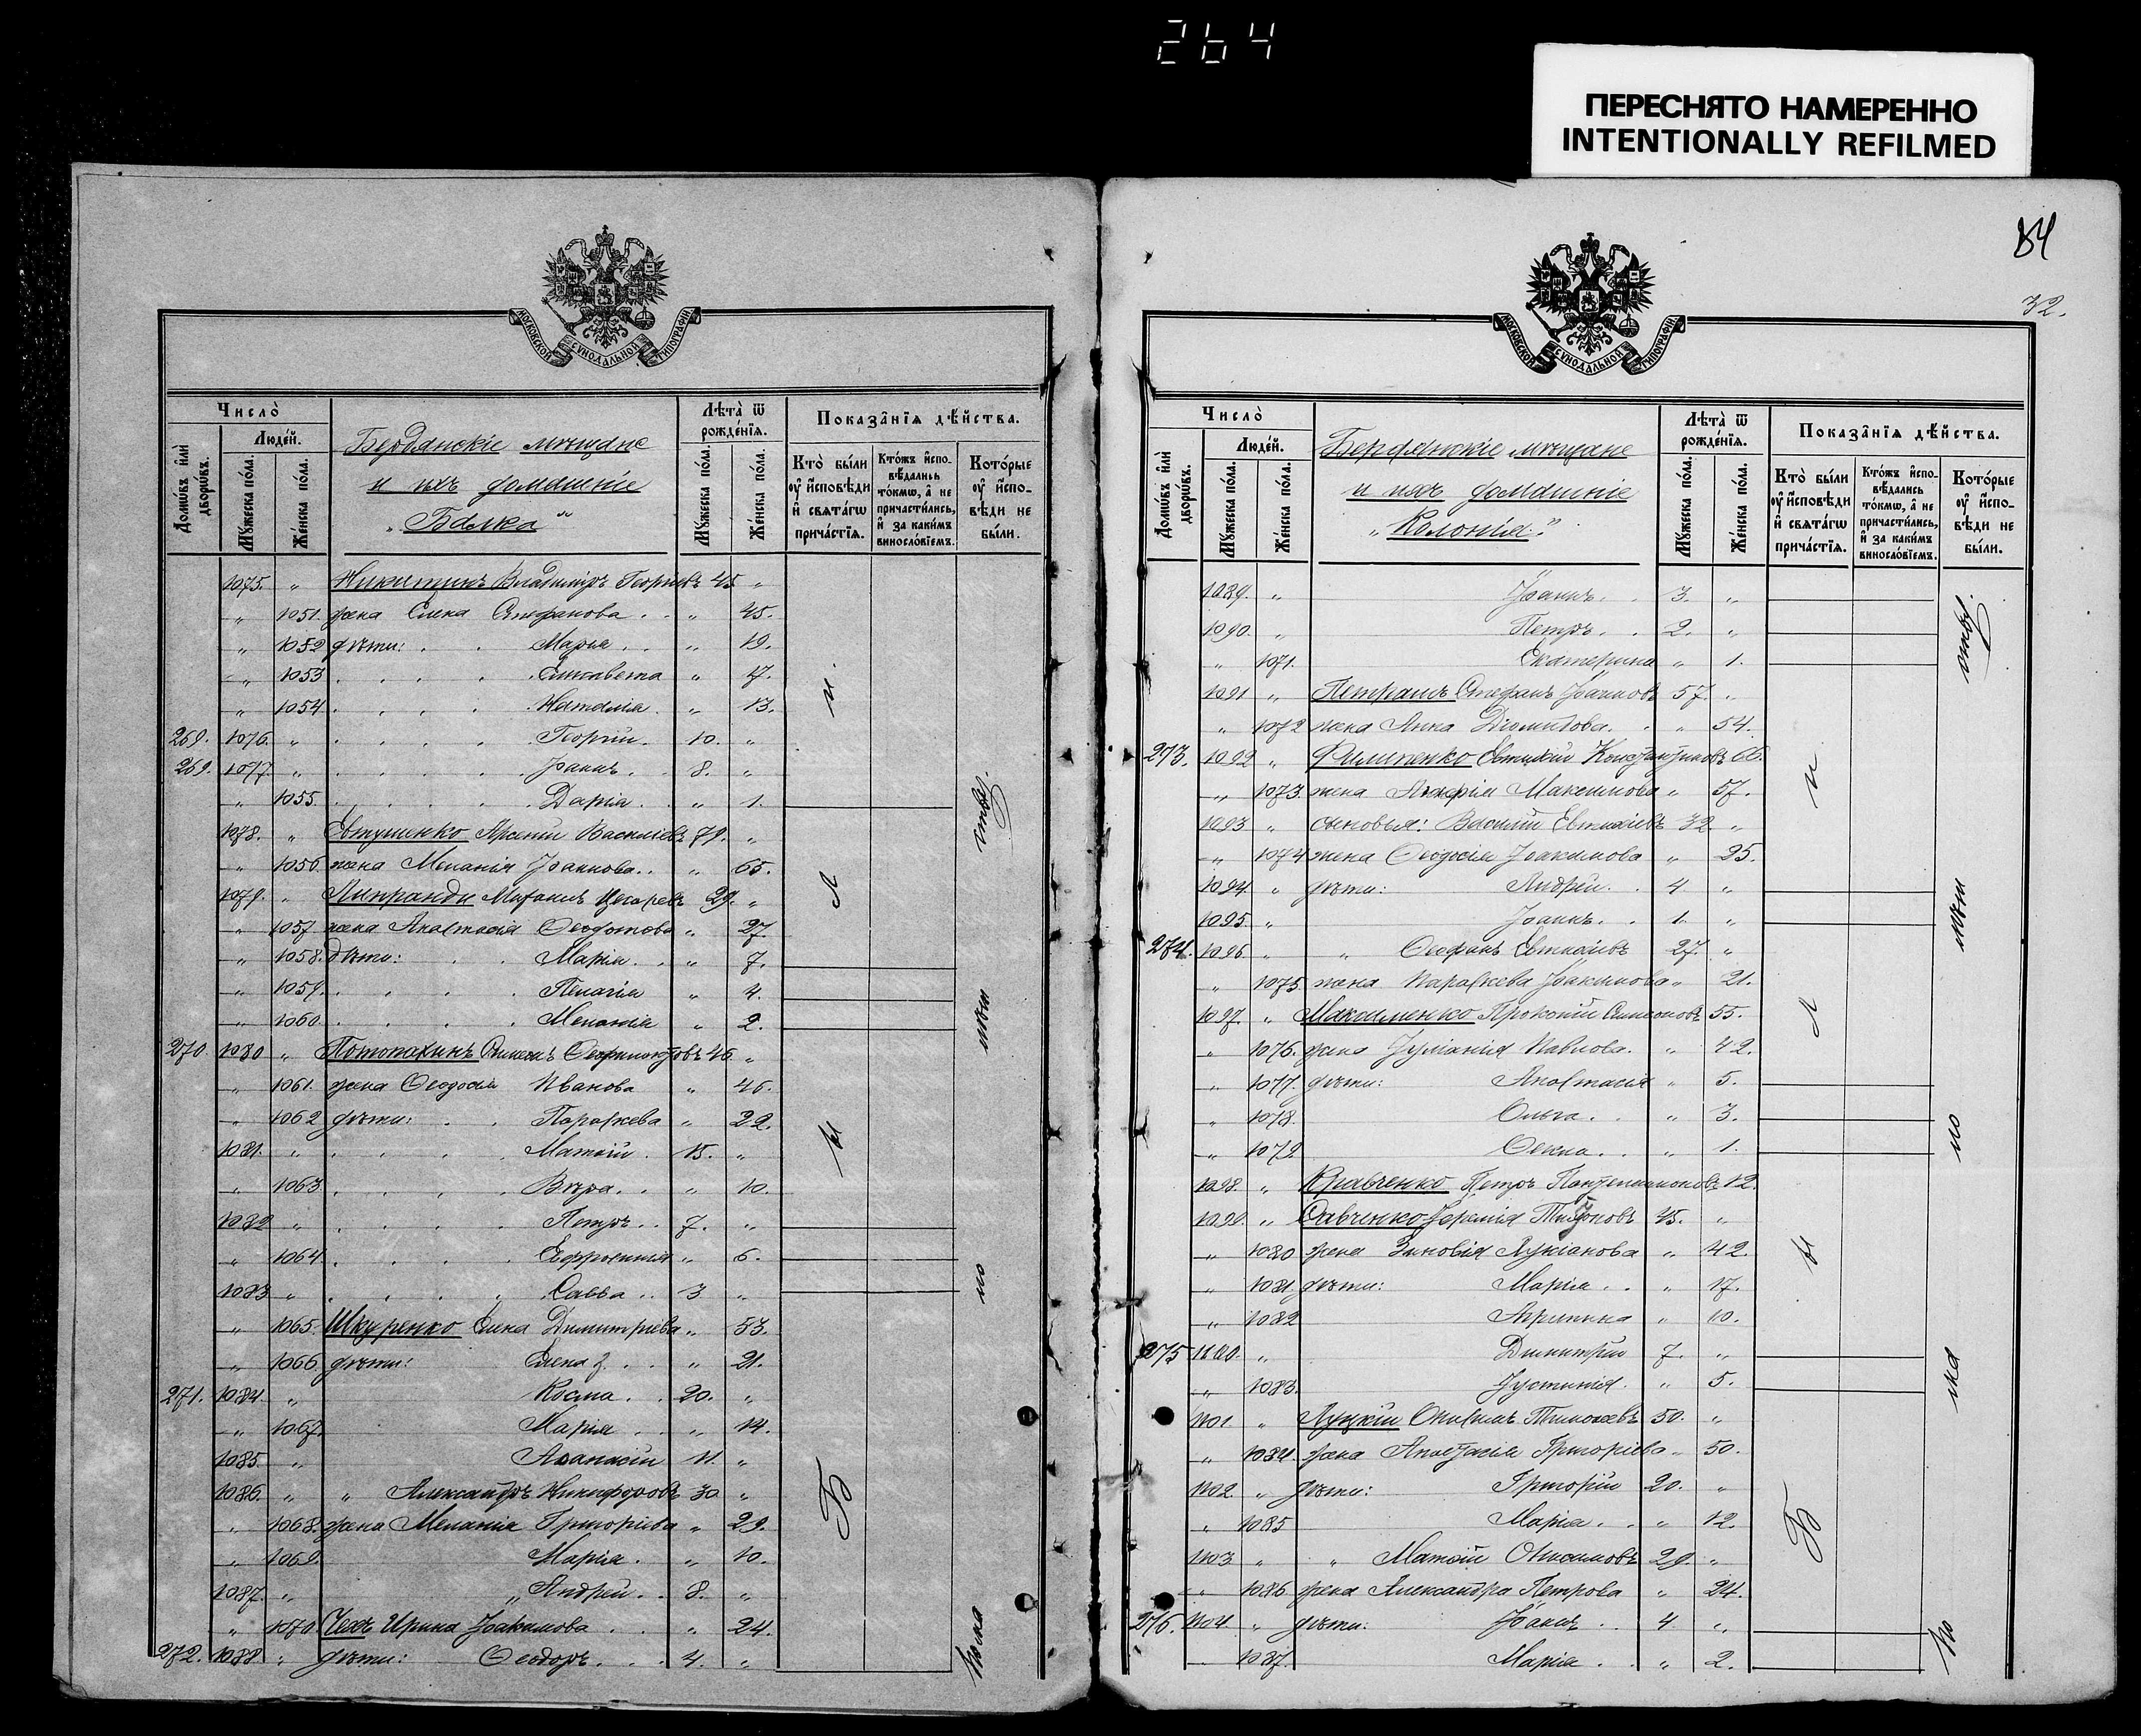 264
ПЕРЕСНЯТО НАМЕРЕННО
INTENTIONALLY REFILMED
МОСКОВСКОЙ СѴНОДАЛЬНОЙ ТИПОГРАФІИ.
Число̀
Люде́й.
Домѡ́въ и҆лѝ дворѡ́въ.
Мꙋ́жеска по́ла.
Же́нска по́ла.
Бердянскіе мѣщане
и ихъ домашніе
„Балка“
Лѣта̀ ѿ рожде́нїѧ.
Мꙋ́жеска по́ла.
Же́нска по́ла.
Показа̑нїѧ дѣ́йства.
Кто̀ бы́ли ᲂу҆ и҆сповѣ́ди и҆ свѧта́гѡ прича́стїѧ.
Кто́жъ и҆сповѣ́дались то́кмѡ, а҆ не причасти́лись, и҆ за каки́мъ виносло́вїемъ.
Кото́рые ᲂу҆ и҆спо́вѣди не бы́ли.
1075. „ Никитинъ Владиміръ Георгіевъ 45 „
„ 1051. жена Елена Стефанова . . „ 45.
„ 1052 дѣти: . . Марія . . „ 19.
„ 1053 . . . . Елисавета „ 17.
„ 1054 . . . . Наталія . „ 13.
269. 1076. „ . . . . Георгій . 10. „
269. 1077. „ . . . . Іоаннъ . . 8. „
„ 1055. . . . . Дарія . . „ 1.
1078. „ Евтушенко Арсеній Василіевъ 79. „
„ 1056. жена Меланія Іоаннова . . „ 65.
1079. „ Липранди 29. „
„ 1057 жена Анастасія Ѳеодотова „ 27
„ 1058. дѣти: . . Марія . . „ 7.
„ 1059. . . . . Пелагія „ 4.
„ 1060. . . . . Меланія „ 2.
270. 1080 „ Потопахинъ 46 „
„ 1061. жена Ѳеодосія Иванова „ 46.
„ 1062 дѣти: . . Параскева „ 22.
1081. „ . . . . Матѳій . 15. „
„ 1063 . . . . Вѣра . . „ 10.
1082 „ . . . . Петръ . . 7. „
„ 1064 . . . . Евфросинія „ 6.
1083 „ . . . . Савва . . 3 „
„ 1065. Шкуренко Елена Димитріева „ 53.
„ 1066 дѣти: Елена . . „ 21.
271. 1084. „ Косма . . 20. „
„ 1067. Марія . . „ 14.
1085. „ Аѳанасій 11. „
1086. „ „ Александръ Никифоровъ 30 „
„ 1068. жена Меланія Григоріева „ 29.
„ 1069. Марія . „ 10.
1087. „ „ Андрей . . 8. „
„ 1070 Чехъ Ирина Іоакимова . . „ 24.
272. 1088. „ дѣти: Ѳеодоръ . . . 4. „
и
л
ы
Б
По ма
ло
мѣт
ству.
84
32.
МОСКОВСКОЙ СѴНОДАЛЬНОЙ ТИПОГРАФІИ.
Число̀
Люде́й.
Домѡ́въ и҆лѝ дворѡ́въ.
Мꙋ́жеска по́ла.
Же́нска по́ла.
Бердянскіе мѣщане
и ихъ домашніе
„Колонія.“
Лѣта̀ ѿ рожде́нїѧ.
Мꙋ́жеска по́ла.
Же́нска по́ла.
Показа̑нїѧ дѣ́йства.
Кто̀ бы́ли ᲂу҆ и҆сповѣ́ди и҆ свѧта́гѡ прича́стїѧ.
Кто́жъ и҆сповѣ́дались то́кмѡ, а҆ не причасти́лись, и҆ за каки́мъ виносло́вїемъ.
Кото́рые ᲂу҆ и҆спо́вѣди не бы́ли.
1089. „ Іоаннъ . . 3. „
1090. „ Петръ . . 2. „
„ 1071. Екатерина „ 1.
1091 „ Петрашъ Стефанъ Іоанновъ 57. „
„ 1072 жена Анна Діомидова . . „ 54.
273. 1092 „ Филипенко Евтихій Константиновъ 66.
„ 1073. жена Агафія Максимова „ 57.
1093 „ сыновья: Василій Евтихіевъ 32. „
„ 1074 жена Ѳеодосія Іоакимова „ 25.
1094 „ дѣти: Андрей . . 4 „
1095. „ Іоаннъ . . 1. „
274. 1096. „ „ Стефанъ Евтихіевъ 27. „
„ 1075 жена Параскева Іоакимова „ 21.
1097. „ Максименко Прокопій Симеоновъ 55.
„ 1076. жена Іуліанія Павлова . „ 42.
„ 1077. дѣти: Анастасія „ 5.
„ 1078. Ольга . . „ 3.
„ 1079 Ѳекла . . „ 1.
1098. „ Кравченко Петръ Пантелеимоновъ 12.
1099. „ Савченко Іеремія Тихоновъ 45. „
„ 1080 жена Зиновія Лукіанова „ 42.
„ 1081. дѣти: Марія . . „ 17.
„ 1082 Агрипина „ 10.
275 1100. „ Димитрій 7. „
„ 1083. Іустинія . „ 5.
1101 „ Луцкій Онисимъ Тимоѳеевъ 50. „
„ 1084. жена Анастасія Григоріева „ 50.
1102. „ дѣти: Григорій 20. „
„ 1085 Марія . . „ 12.
1103 „ „ Матѳій Онисимовъ 29. „
„ 1086 жена Александра Петрова „ 24.
276. 1104. „ дѣти: Іоаннъ . . 4 „
„ 1087. Марія . . „ 2.
и
л
ы
Б
По
ма
ло
мѣт
ству.